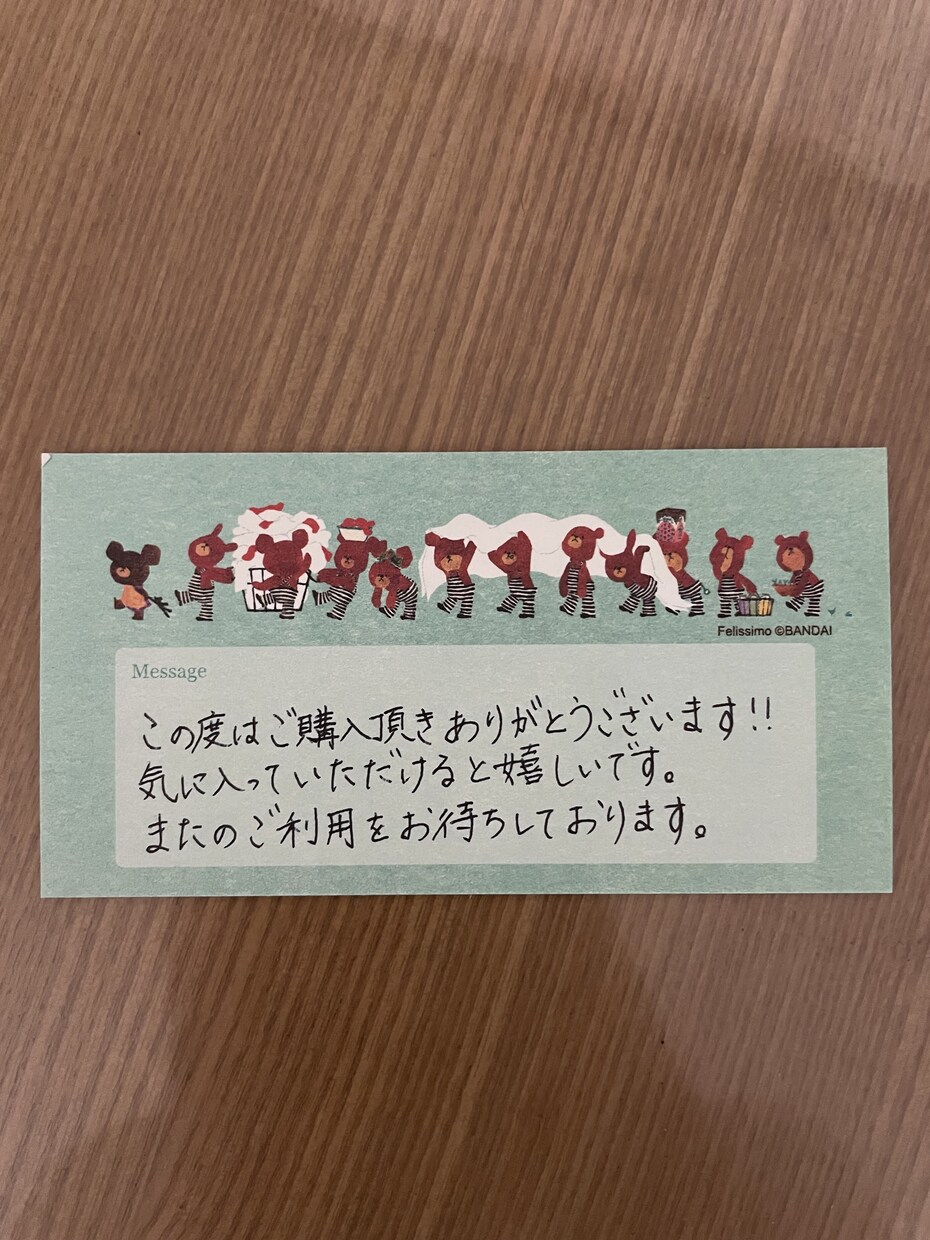 Felissimo ©BANDAI
Message
この度はご購入頂きありがとうございます!!
気に入っていただけると嬉しいです。
またのご利用をお待ちしております。